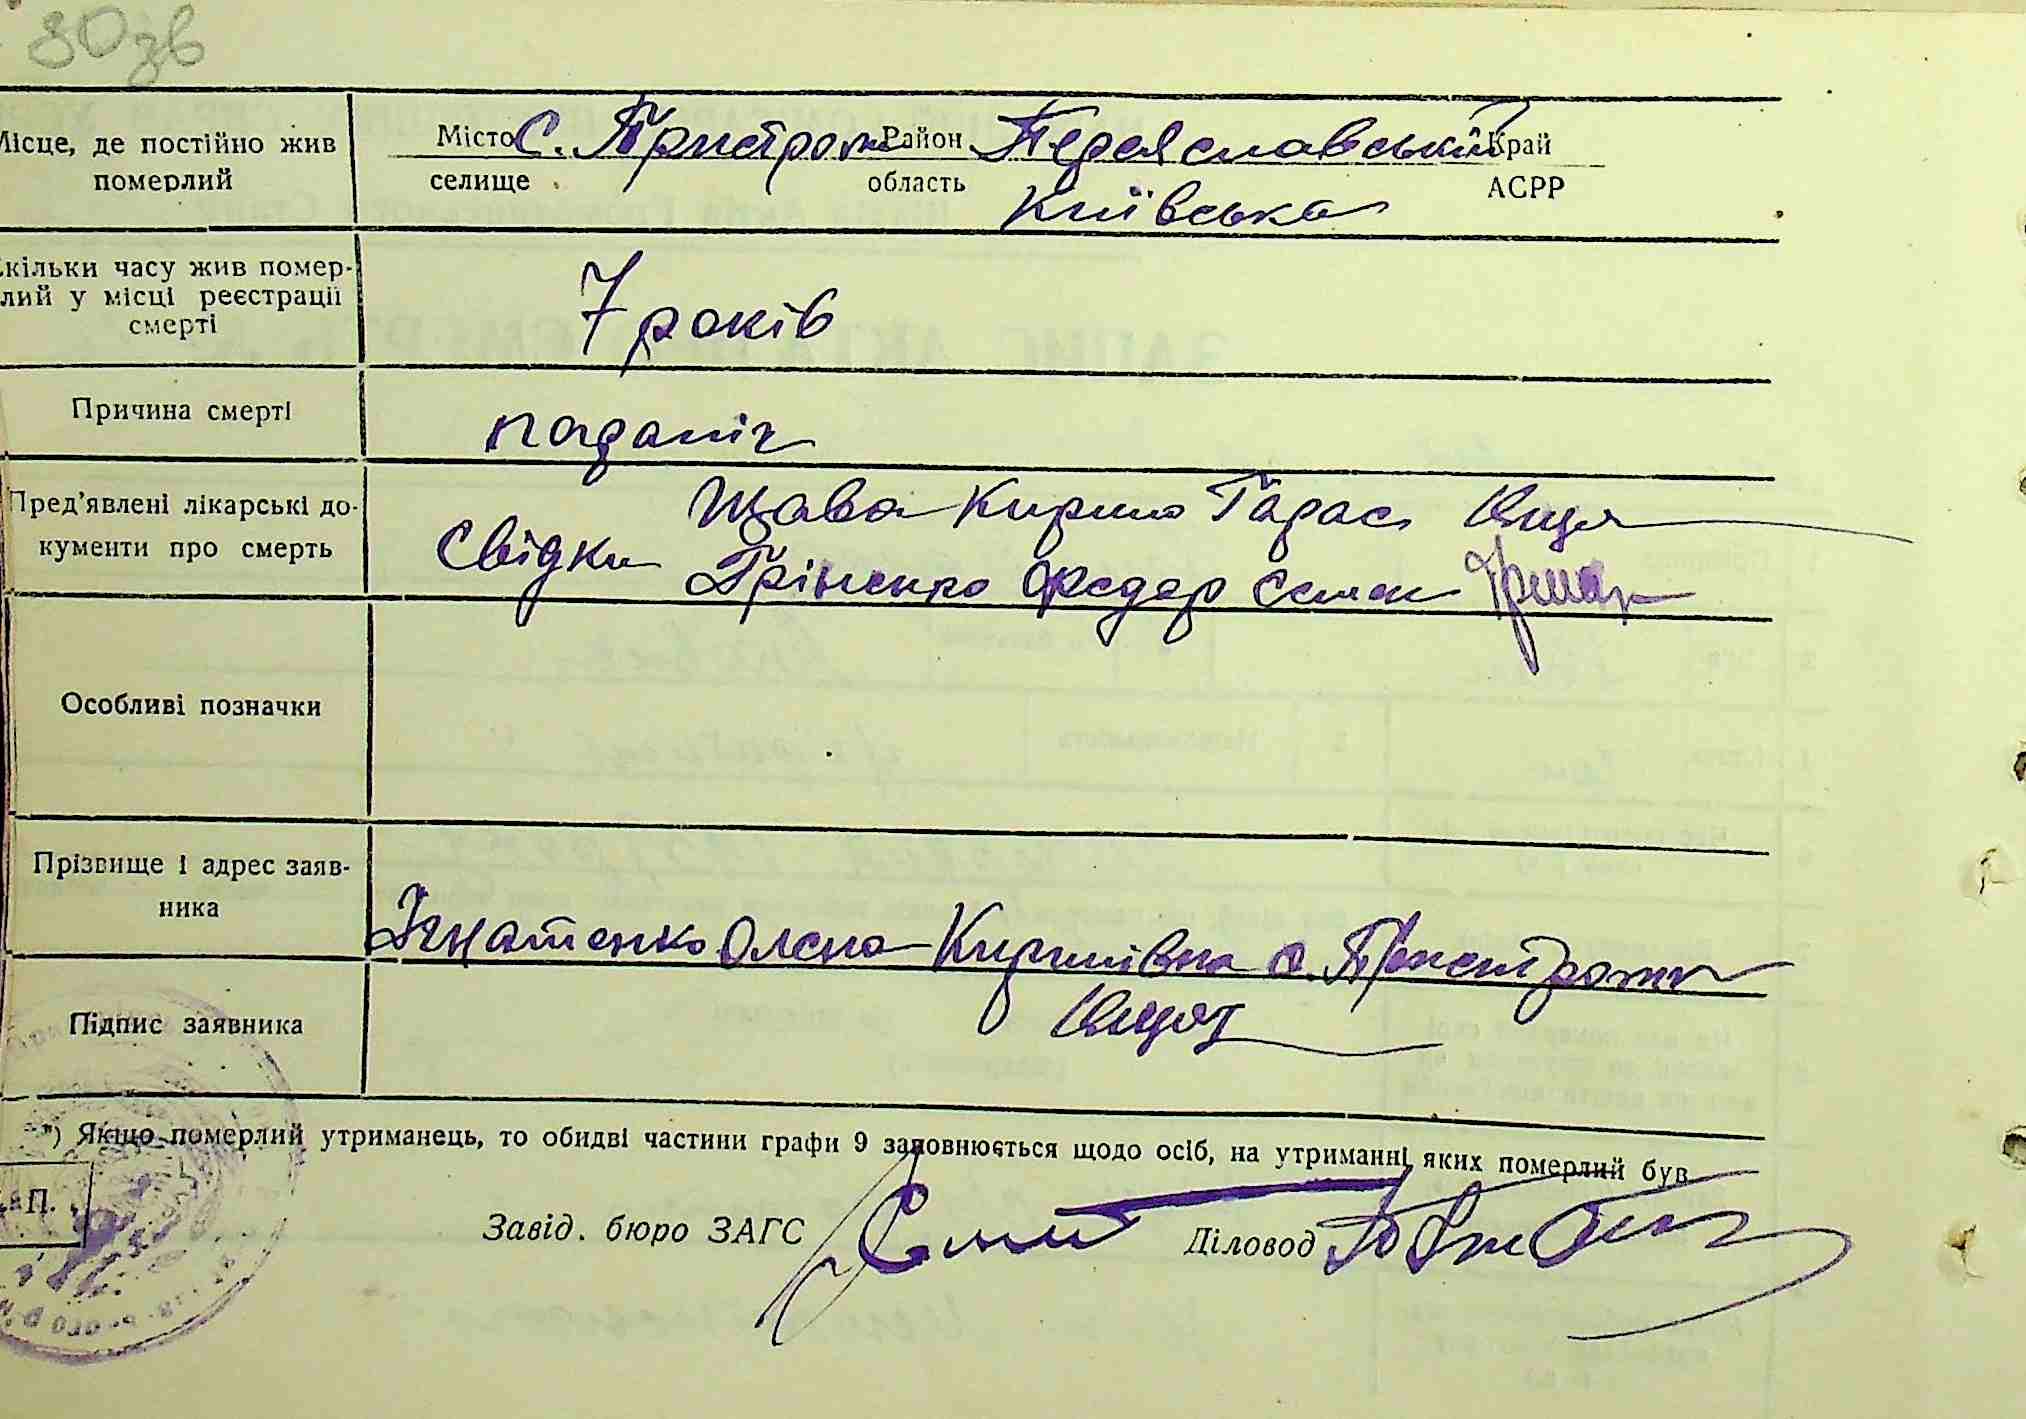 30зв
Місце, де постійно жив
померлий
Місто С. Пристром Район Переяславський Край
селище область АСРР
Київська
Скільки часу жив помер-
лий у місці реєстрації
смерті
7 років
Причина смерті
Пред'явлені лікарські до-
кументи про смерть
Щава Кирило Тарас
Свідки
Гріненко Федер Семен
Особливі позначки
Прізвище і адрес заяв-
ника
Ігнатенко Олена Кирилівна с. Пристроми
Підпис заявника
*) Якщо померлий утриманець, то обидві частини графи 9 заповнюється щодо осіб, на утриманні яких померлий був
М.П.
Завід. бюро ЗАГС Діловод